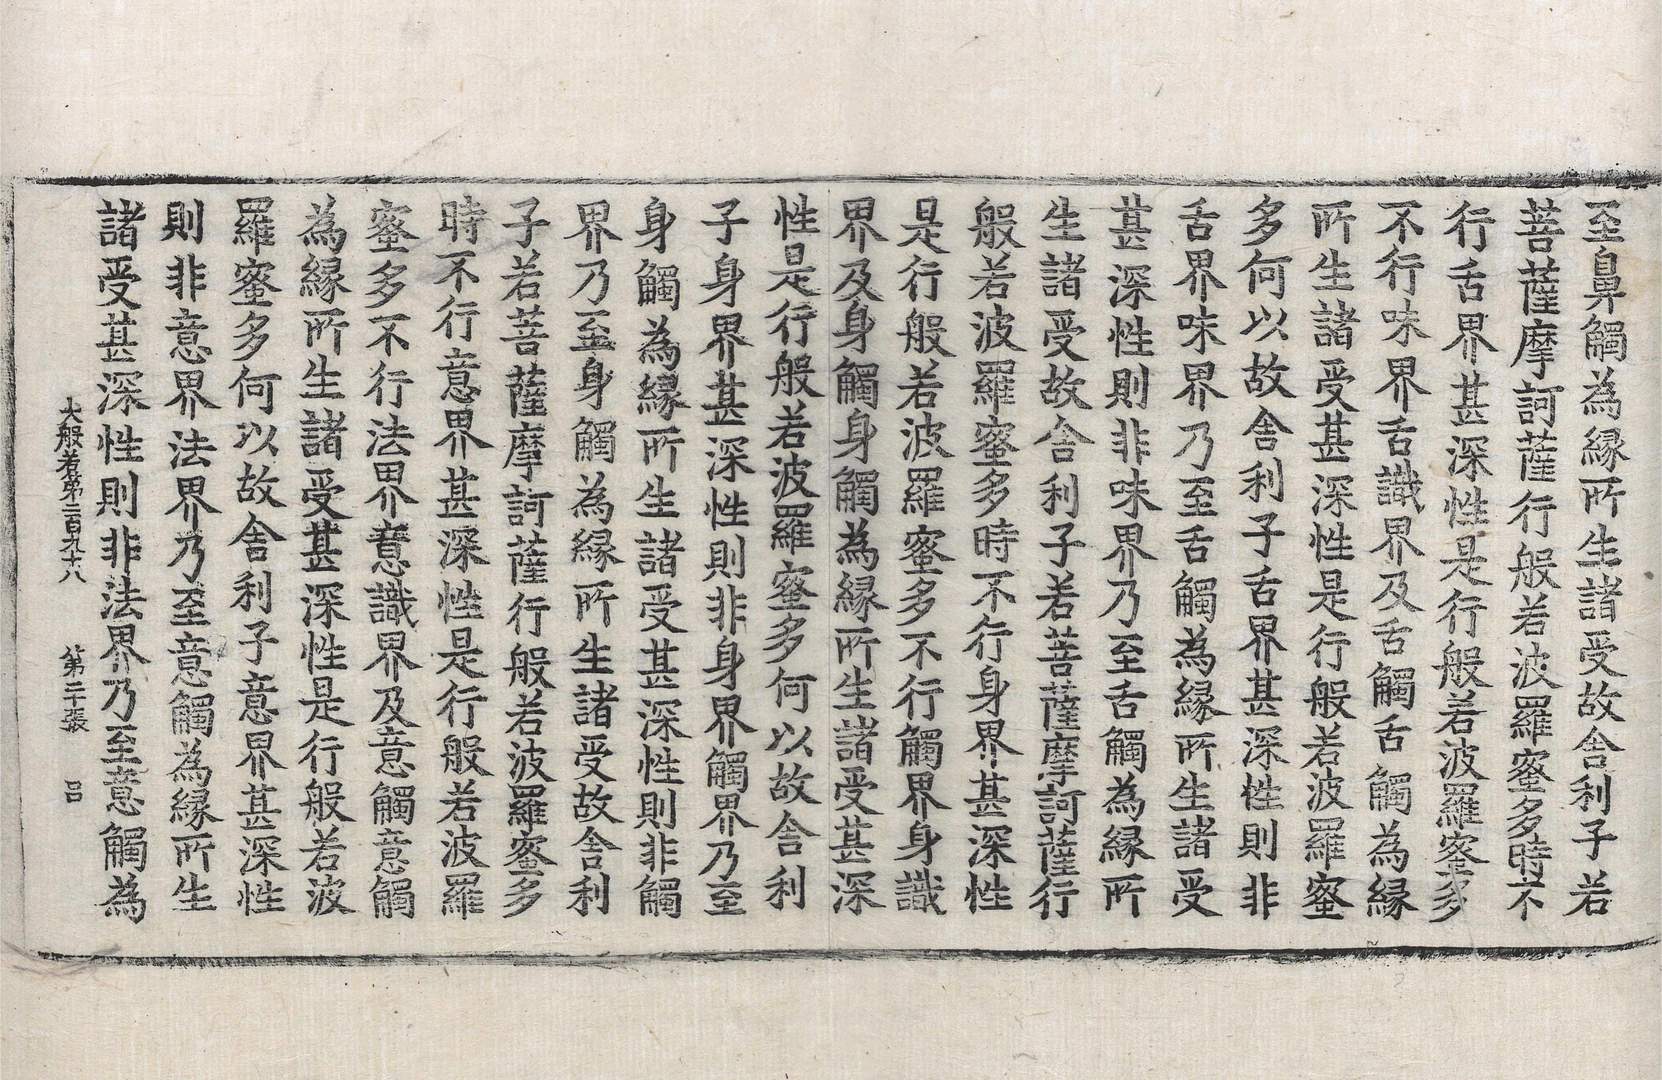 至鼻觸為縁所生諸受故舍利子若
菩薩摩訶薩行般若波羅蜜多時不
行舌界甚深性是行般若波羅蜜多
不行味界舌識界及舌觸舌觸為縁
所生諸受甚深性是行般若波羅蜜
多何以故舍利子舌界甚深性則非
舌界味界乃至舌觸為縁所生諸受
甚深性則非味界乃至舌觸為縁所
生諸受故舍利子若菩薩摩訶薩行
般若波羅蜜多時不行身界甚深性
是行般若波羅蜜多不行觸界身識
界及身觸身觸為縁所生諸受甚深
性是行般若波羅蜜多何以故舍利
子身界甚深性則非身界觸界乃至
身觸為縁所生諸受甚深性則非觸
界乃至身觸為縁所生諸受故舍利
子若菩薩摩訶薩行般若波羅蜜多
時不行意界甚深性是行般若波羅
蜜多不行法界意識界及意觸意觸
為縁所生諸受甚深性是行般若波
羅蜜多何以故舍利子意界甚深性
則非意界法界乃至意觸為縁所生
諸受甚深性則非法界乃至意觸為
大般若第二百九十八 第二十張 呂